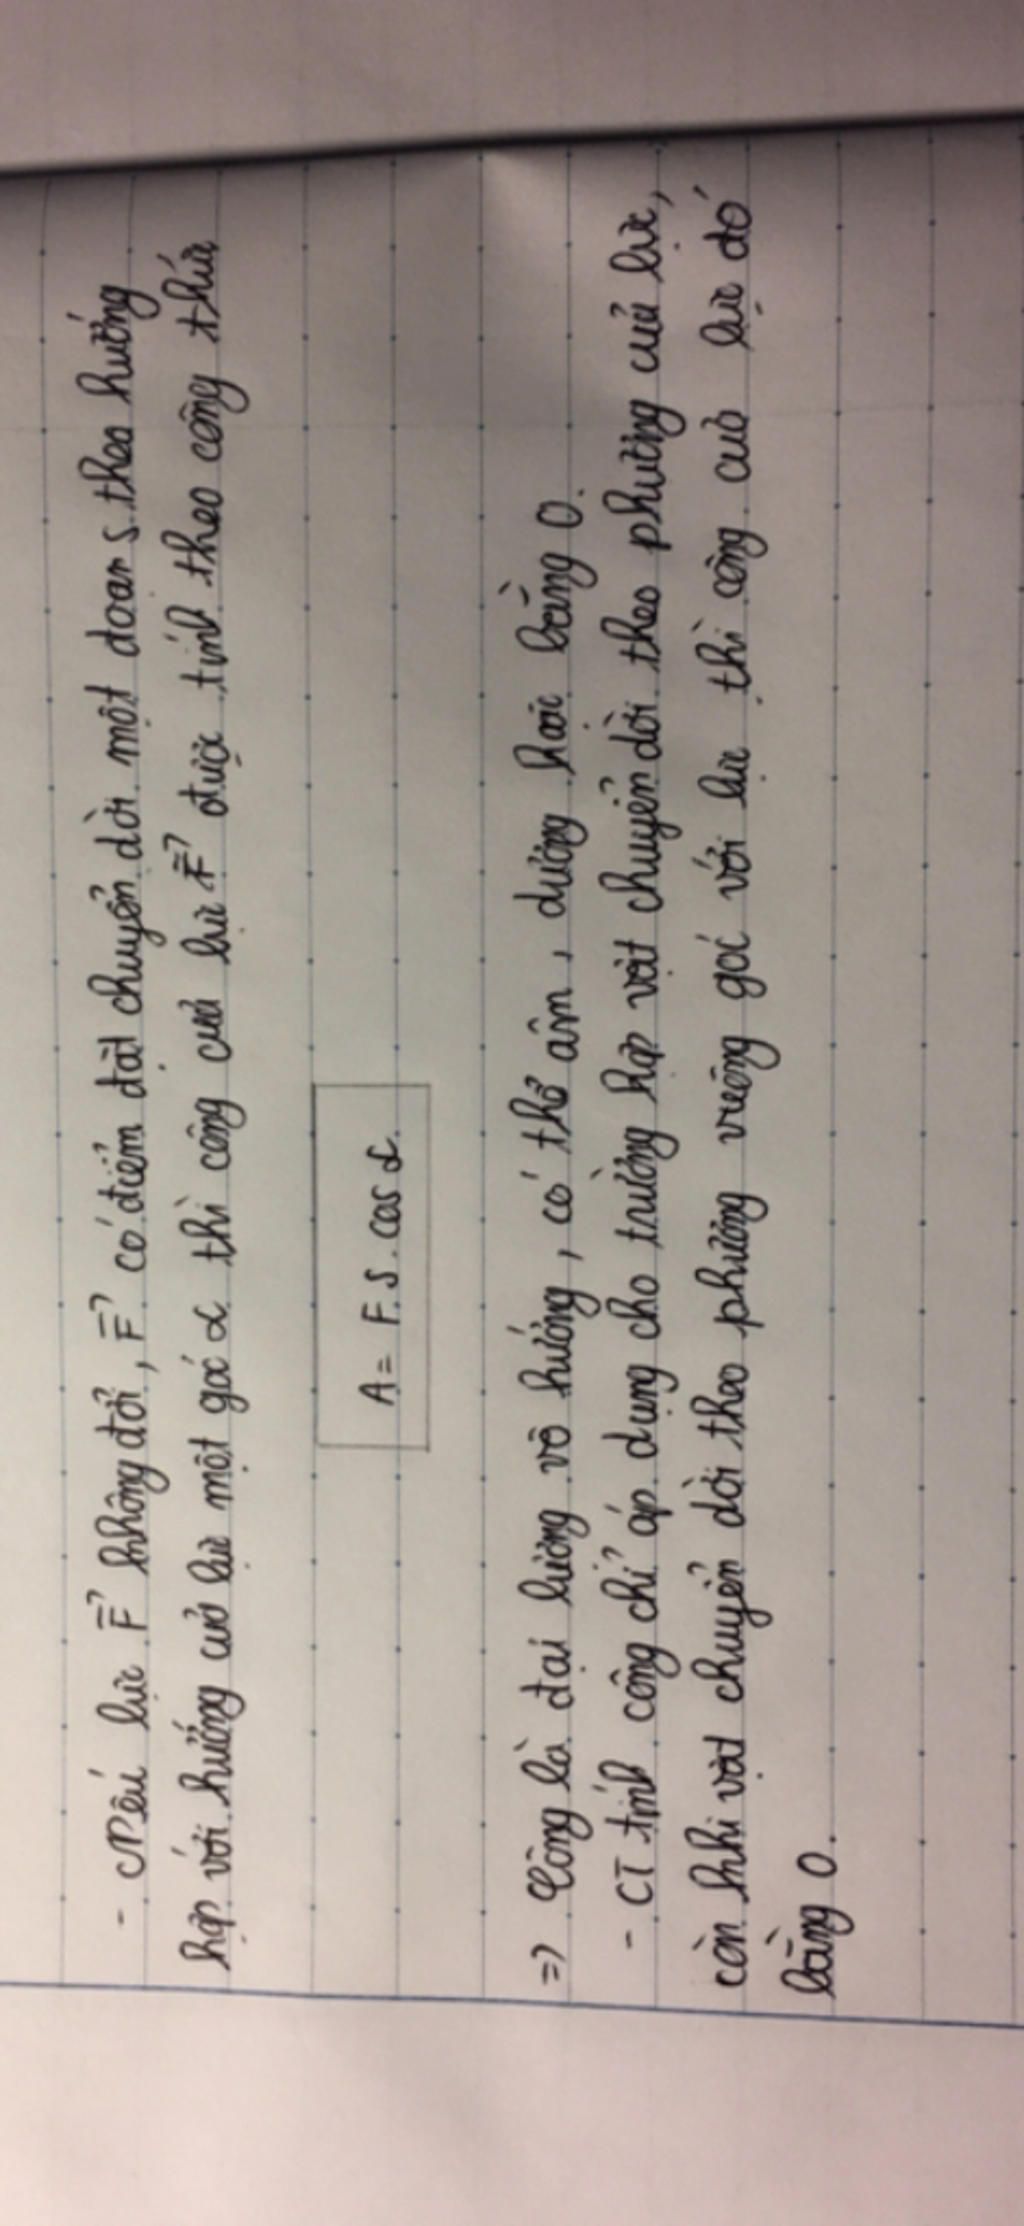 - Nếu lực F⃗ không đổi, F⃗ có điểm đặt chuyển dời một đoạn s theo hướng
hợp với hướng của lực một góc α thì công của lực F⃗ được tính theo công thức
A = F.s.cos α
=> Công là đại lượng vô hướng, có thể âm, dương hoặc bằng 0.
- CT tính công chỉ áp dụng cho trường hợp vật chuyển dời theo phương của lực,
còn khi vật chuyển dời theo phương vuông góc với lực thì công của lực đó
bằng 0.